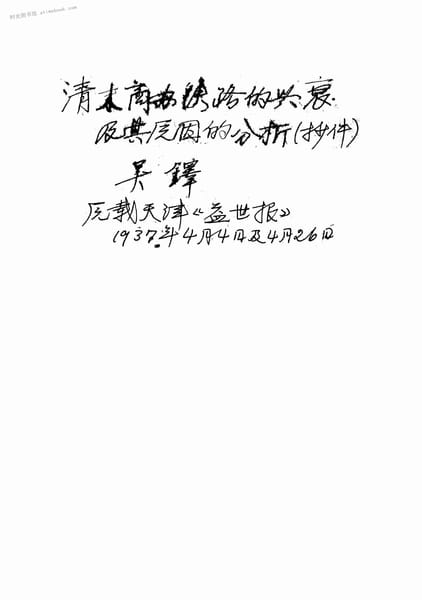 时光图书馆 atimebook.com
清末商办铁路的兴衰
及其原因的分析(抄件)
吴鐸
原载天津《益世报》
1937.年4月4日及4月26日